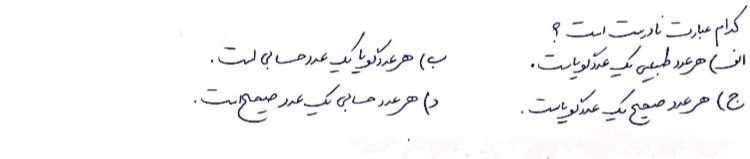 کدام عبارت نادرست است ؟
الف) هر عدد طبیعی یک عدد گویاست. ب) هر عدد گویا یک عدد حسابی است.
ج) هر عدد صحیح یک عدد گویاست. د) هر عدد حسابی یک عدد صحیح است.